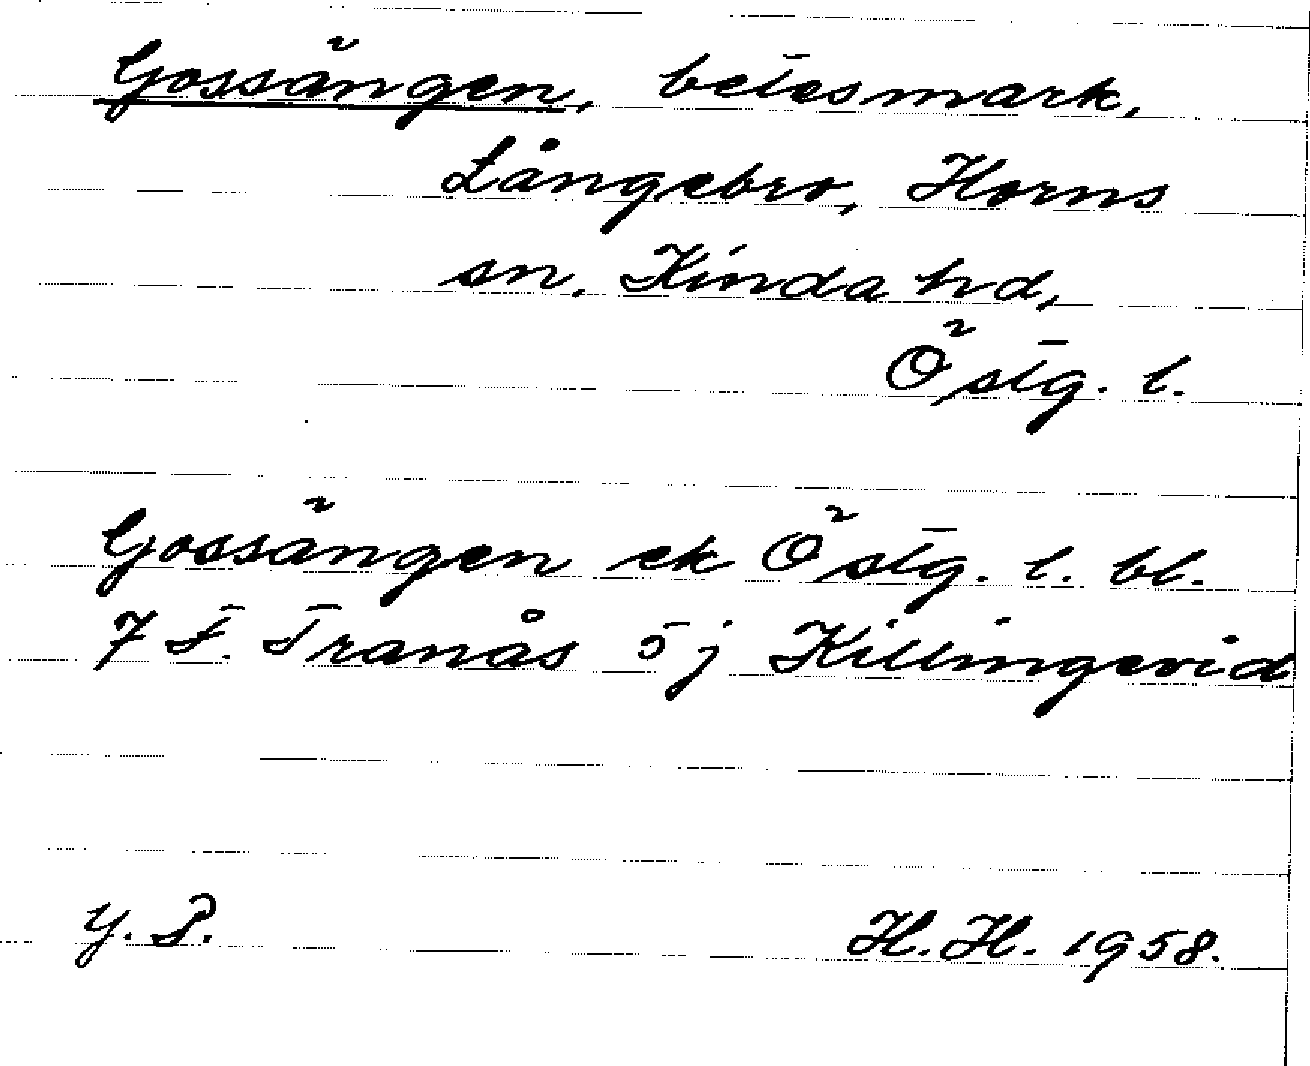 Gossängen, betesmark,
Långebro, Horns
sn. Kinda hd,
Östg. l.
Gossängen ek Östg. l. bl.
7 F. Tranås 5 j Killingevid
y. P.
H. H. 1958.